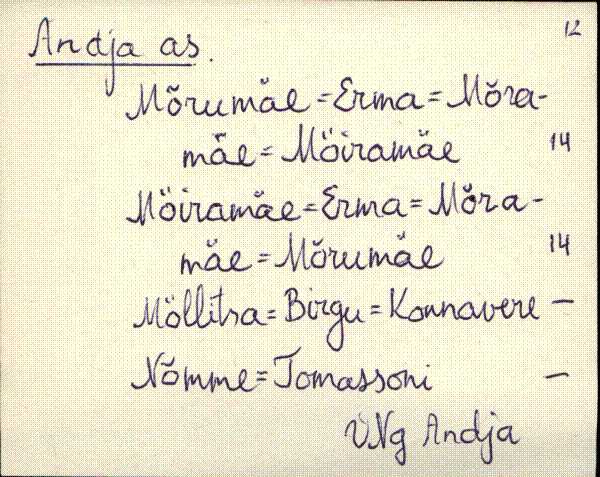 12
Andja as.
Mõrumäe = Erma = Mõra-
mäe = Möiramäe 14
Möiramäe = Erma = Mõra-
mäe = Mõrumäe 14
Möllitsa = Birgu = Konnavere —
Nõmme = Tomassoni —
VNg Andja